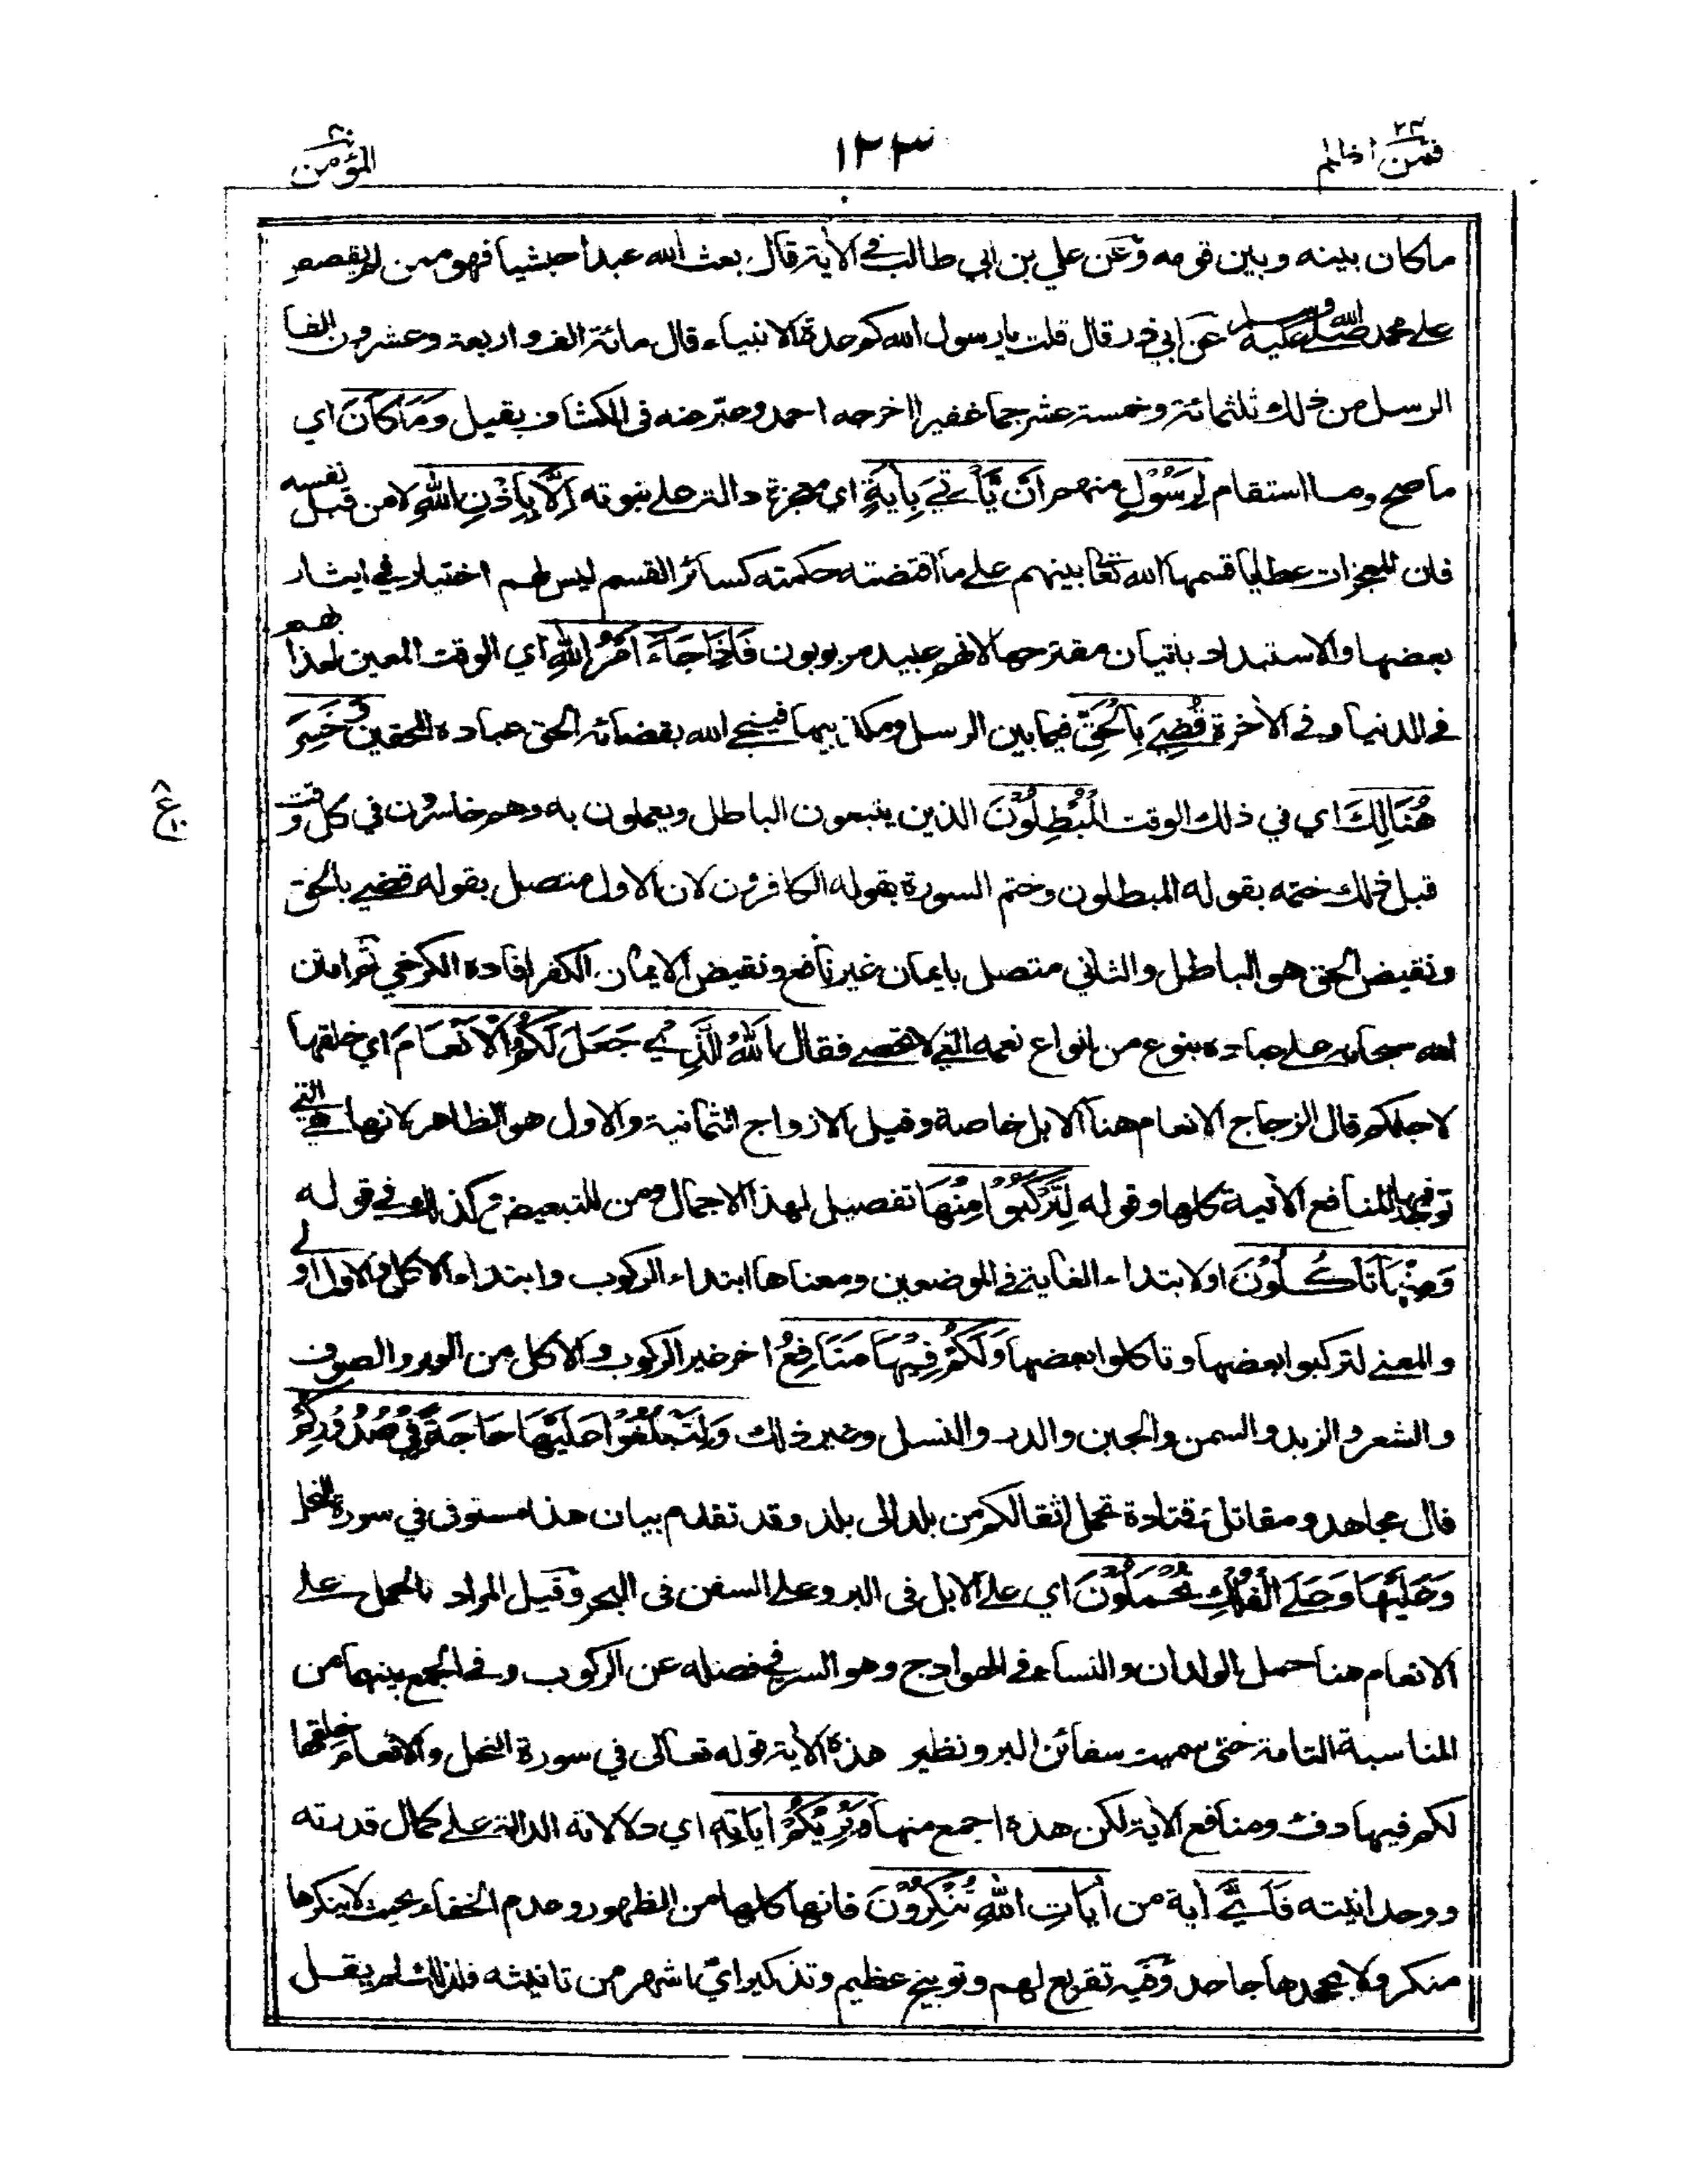 فمن اظلم ٢٤
١٢٣
المؤمن ٤٠
ما كان بينه وبين قومه وعن علي بن ابي طالب في الأية قال بعث الله عبدا حبشيا فهو ممن لم يقصص
على محمد صلى الله عليه وسلم عن ابي ذر قال قلت يا رسول الله كم عدة الانبياء قال مائة الف واربعة وعشرون الفا
الرسل من ذلك ثلثمائة وخمسة عشر جما غفيرا اخرجه احمد وعبر عنه في الكشاف بقيل وَمَا كَانَ اي
ما صح وما استقام لِرَسُوْلٍ منهم اَنْ يَّأْتِيَ بِاٰيَةٍ اي معجزة دالة على نبوته اِلَّا بِاِذْنِ اللّٰهِ لا من قبل نفسه
فان المعجزات عطايا قسمها الله تعالى بينهم على ما اقتضته حكمته كسائر القسم ليس لهم اختيار في ايثار
بعضها والاستبداد باتيان مقترحها لانهم عبيد مربوبون فَاِذَا جَاۤءَ اَمْرُ اللّٰهِ اي الوقت المعين لعذابهم
في الدنيا وفي الأخرة قُضِيَ بِالْحَقِّ فيما بين الرسل ومكذبيها فينجي الله بقضائه الحق عباده المحقين وَخَسِرَ
هُنَالِكَ اي في ذلك الوقت الْمُبْطِلُوْنَ الذين يتبعون الباطل ويعملون به وهم خاسرون في كل وقت
ع
قبل ذلك ختمه بقوله المبطلون وختم السورة بقوله الكافرون لان الاول متصل بقوله قضي بالحق
ونقيض الحق هو الباطل والثاني متصل بايمان غير نافع ونقيض الايمان الكفر افاده الكرخي ثم امتن
الله سبحانه على عباده بنوع من انواع نعمه التي لا تحصى فقال اَللّٰهُ الَّذِيْ جَعَلَ لَكُمُ الْاَنْعَامَ اي خلقها
لاجلكم قال الزجاج الانعام هنا الابل خاصة وقيل الازواج الثمانية والاول هو الظاهر لانها هي التي
توجد فيها المنافع الأتية كلها وقوله لِتَرْكَبُوْا مِنْهَا تفصيل لهذا الاجمال ومن للتبعيض وكذلك في قوله
وَمِنْهَا تَأْكُلُوْنَ او لابتداء الغاية في الموضعين ومعناها ابتداء الركوب وابتداء الاكل والاول اولى
والمعنى لتركبوا بعضها وتاكلوا بعضها وَلَكُمْ فِيْهَا مَنَافِعُ اخر غير الركوب والاكل من الوبر والصوف
والشعر والزبد والسمن والجبن والدر والنسل وغير ذلك وَلِتَبْلُغُوْا عَلَيْهَا حَاجَةً فِيْ صُدُوْرِكُمْ
قال مجاهد ومقاتل وقتادة تحمل اثقالكم من بلد الى بلد وقد تقدم بيان هذا مستوفى في سورة النحل
وَعَلَيْهَا وَعَلَى الْفُلْكِ تُحْمَلُوْنَ اي على الابل في البر وعلى السفن في البحر وقيل المراد بالحمل على
الانعام هنا حمل الولدان والنساء في الهوادج وهو السر في فصله عن الركوب وفي الجمع بينهما من
المناسبة التامة حتى سميت سفائن البر ونظير هذه الأية قوله تعالى في سورة النحل والانعام خلقها
لكم فيها دفء ومنافع الأية لكن هذه اجمع منها وَيُرِيْكُمْ اٰيَاتِهٖ اي دلالاته الدالة على كمال قدرته
ووحدانيته فَاَيَّ أية من اٰيَاتِ اللّٰهِ تُنْكِرُوْنَ فانها كلها من الظهور وعدم الخفاء بحيث لا ينكرها
منكر ولا يجحدها جاحد وفيه تقريع لهم وتوبيخ عظيم وتذكير اي اشهر من تانيثه فلذلك لم يقل